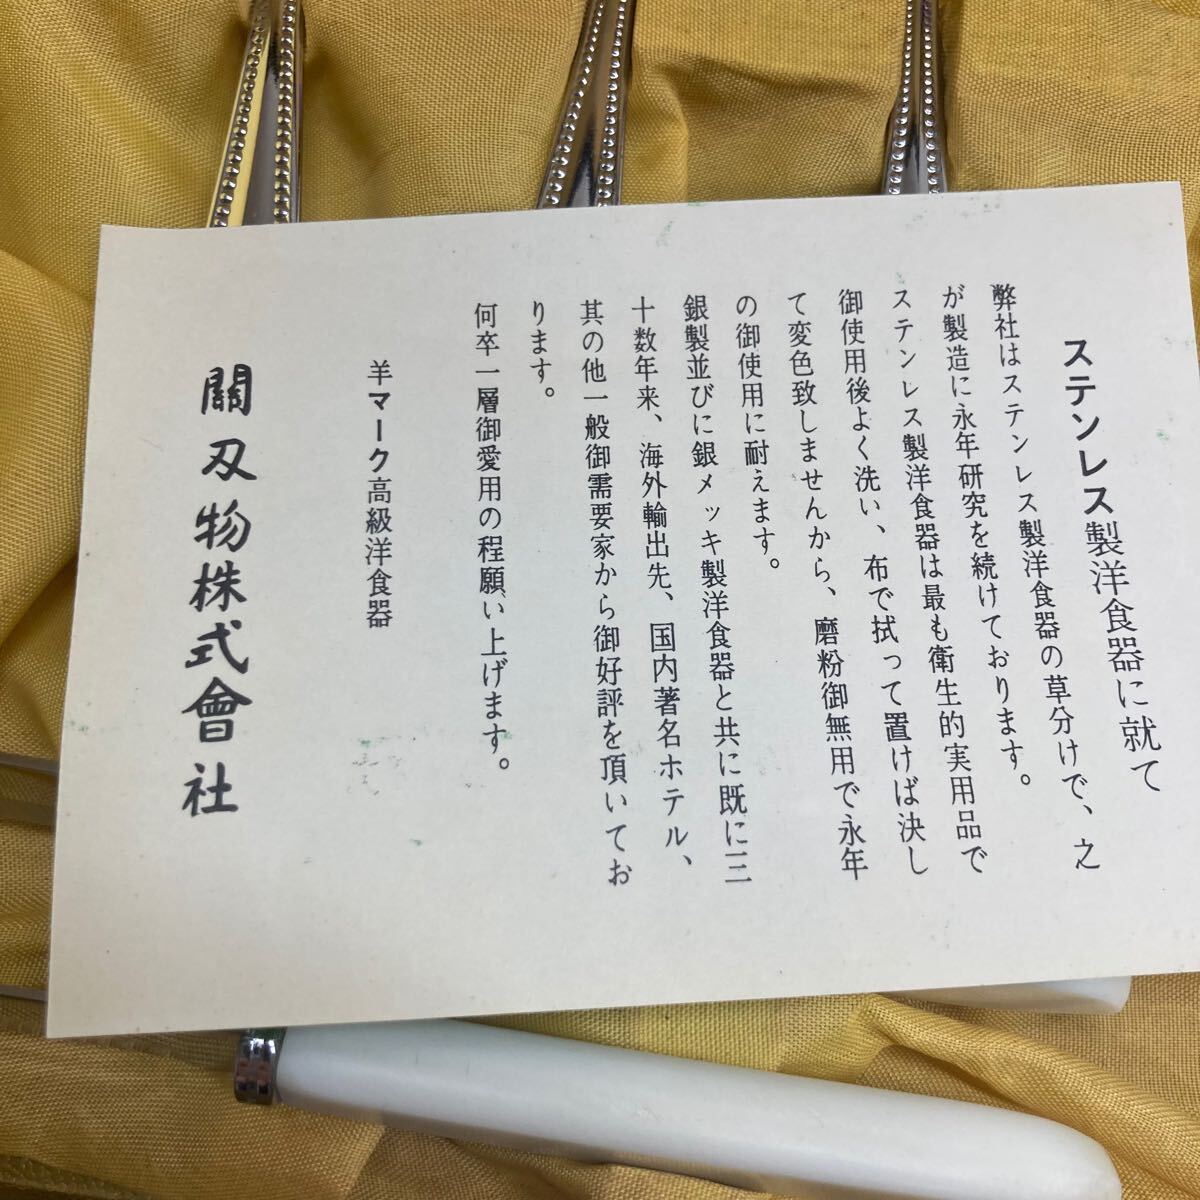 ステンレス製洋食器に就て
弊社はステンレス製洋食器の草分けで、之
が製造に永年研究を続けております。
ステンレス製洋食器は最も衛生的実用品で
御使用後よく洗い、布で拭って置けば決し
て変色致しませんから、磨粉御無用で永年
の御使用に耐えます。
銀製並びに銀メッキ製洋食器と共に既に三
十数年来、海外輸出先、国内著名ホテル、
其の他一般御需要家から御好評を頂いてお
ります。
何卒一層御愛用の程願い上げます。
羊マーク高級洋食器
關刃物株式會社